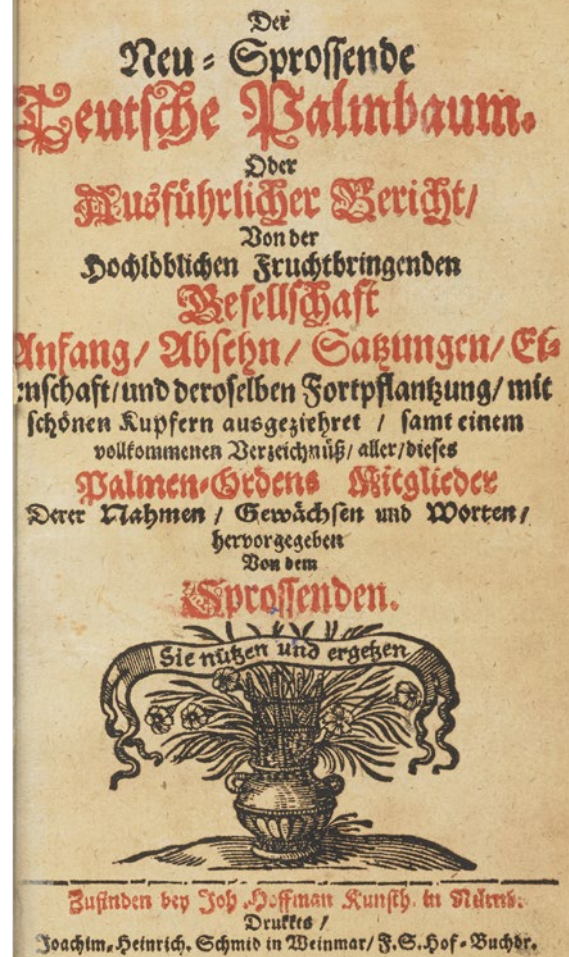 Der
Neu-Sprossende
Teutsche Palmbaum.
Oder
Ausführlicher Bericht/
Von der
Hochlöblichen Fruchtbringenden
Gesellschaft
Anfang/ Absehn/ Satzungen/ Ei-
enschaft/ und deroselben Fortpflantzung/ mit
schönen Kupfern ausgeziehret / samt einem
vollkommenen Verzeichnüß/ aller/ dieses
Palmen-Ordens Mitglieder
Derer Nahmen / Gewächsen und Worten/
hervorgegeben
Von dem
Sprossenden.
Sie nützen und ergetzen
Zufinden bey Joh. Hoffman Kunsth. in Nürnb.
Drukkts /
Joachim-Heinrich. Schmid in Weinmar/ F. S. Hof-Buchdr.